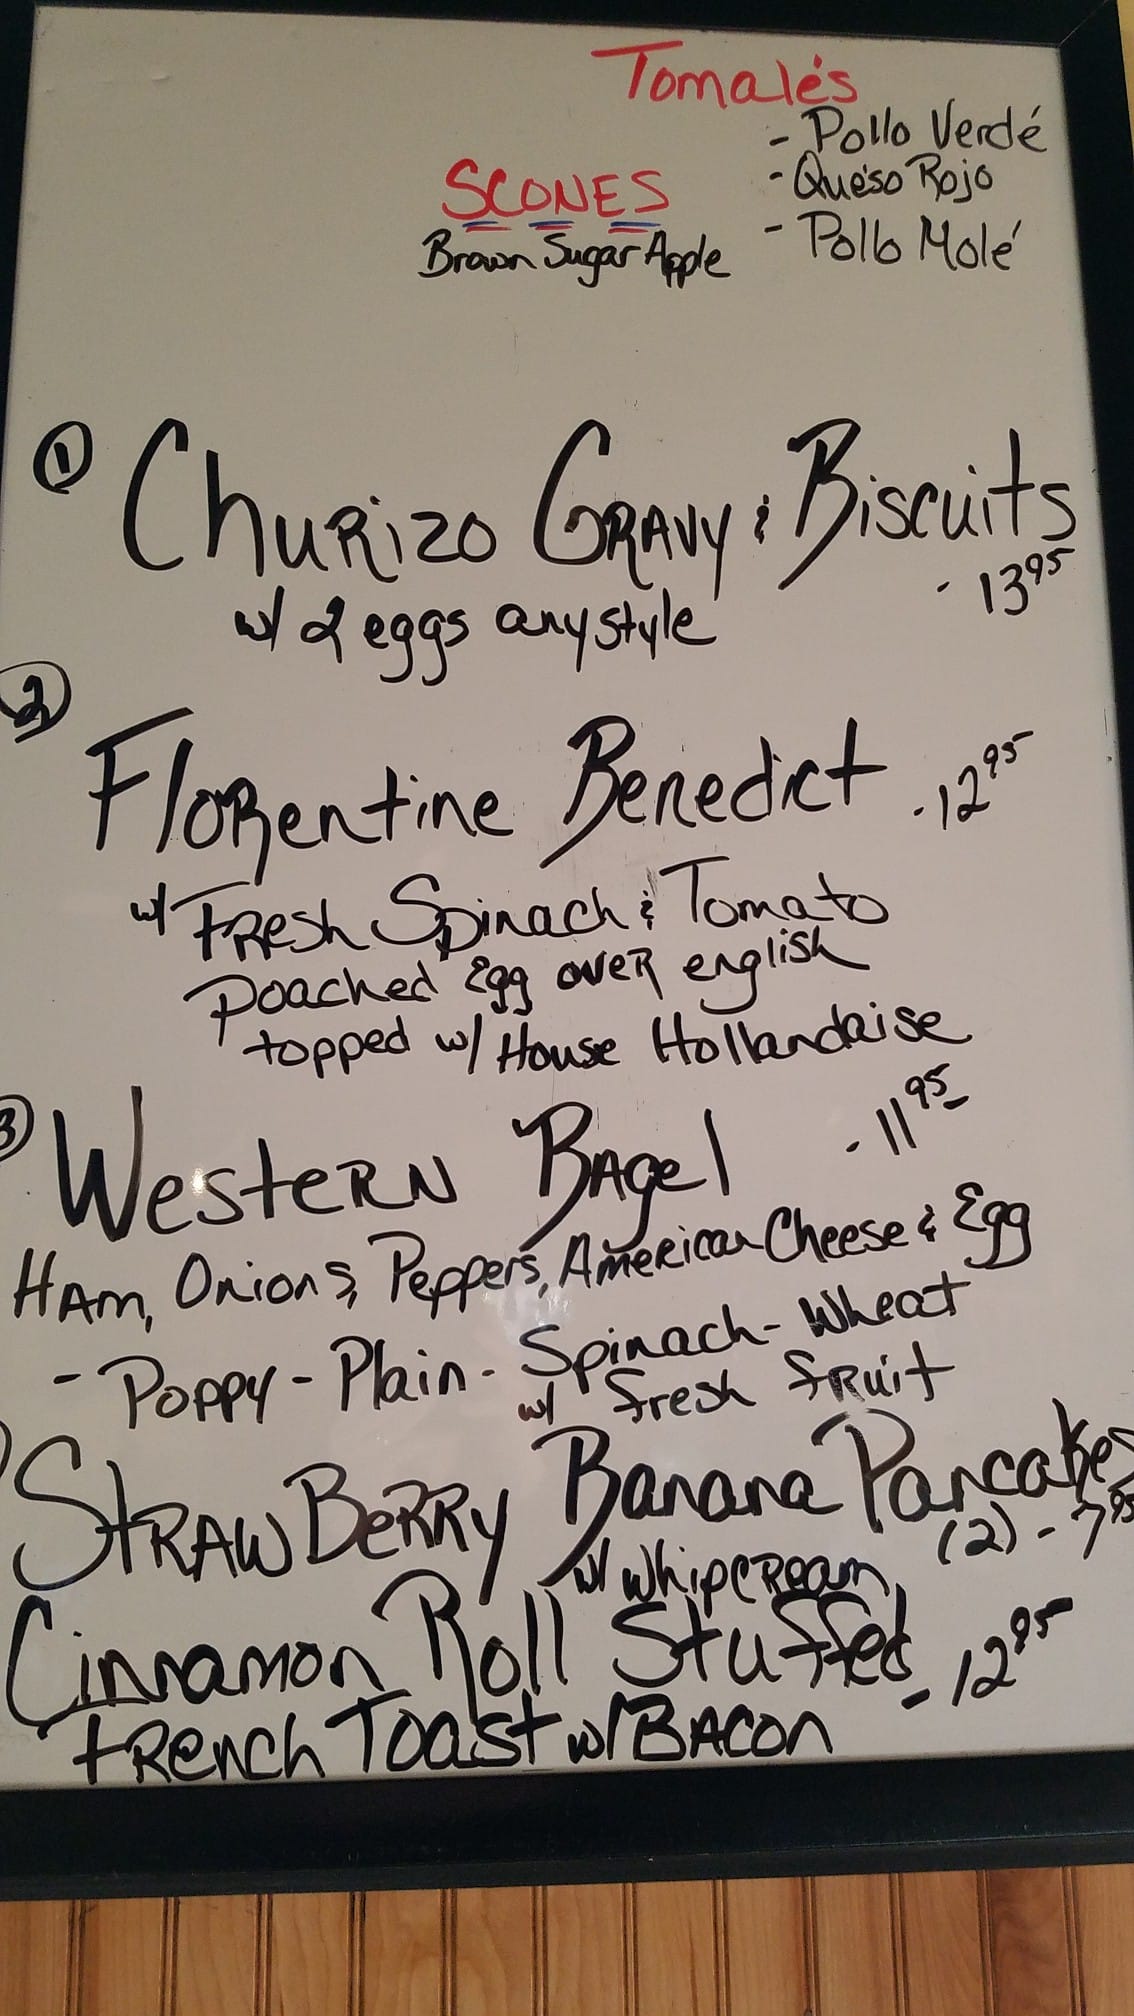 Tomalés
- Pollo Verdé
- Quéso Rojo
- Pollo Molé
SCONES
Brown Sugar Apple
① Churizo Gravy & Biscuits
w/ 2 eggs any style - 13⁹⁵
② Florentine Benedict - 12⁹⁵
w/ Fresh Spinach & Tomato
poached Egg over english
topped w/ House Hollandaise
③ Western Bagel - 11⁹⁵
Ham, Onions, Peppers, American Cheese & Egg
- Poppy - Plain - Spinach - Wheat
w/ fresh fruit
Strawberry Banana Pancakes
w/ whipcream (2) - 7⁹⁵
Cinnamon Roll Stuffed
french Toast w/ Bacon - 12⁹⁵